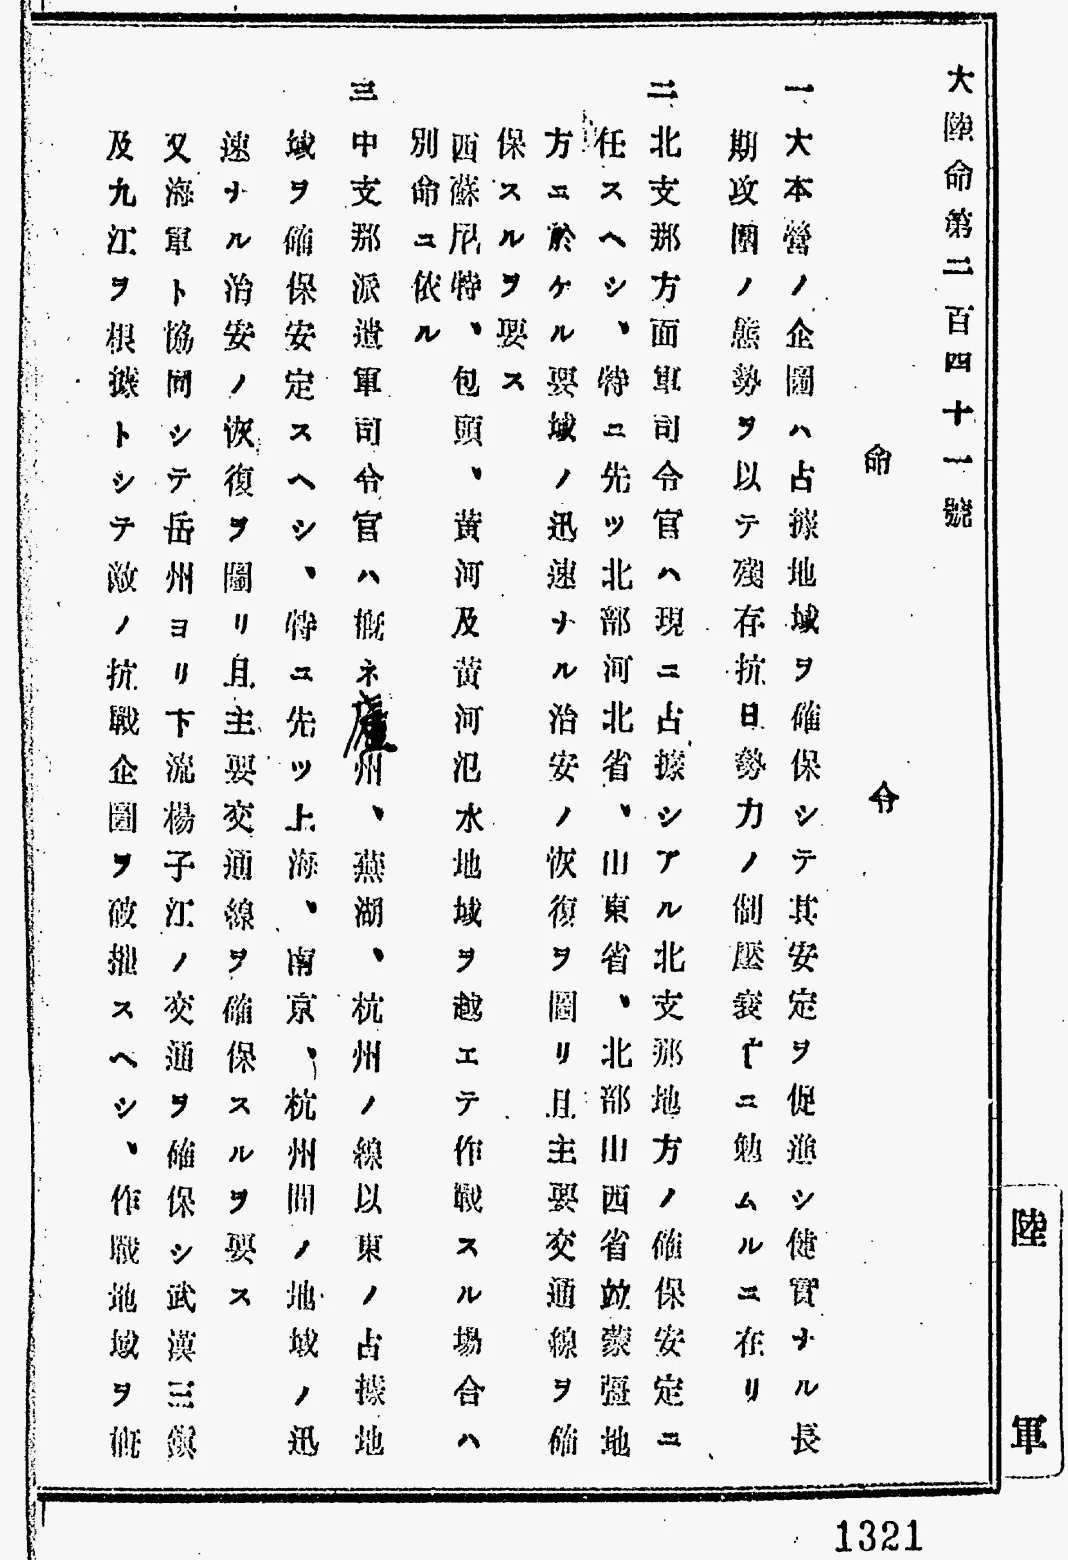 大陸命第二百四十一號
命令
一 大本營ノ企圖ハ占據地域ヲ確保シテ其安定ヲ促進シ健實ナル長
期攻圍ノ態勢ヲ以テ殘存抗日勢力ノ制壓衰亡ニ勉ムルニ在リ
二 北支那方面軍司令官ハ現ニ占據シアル北支那地方ノ確保安定ニ
任スヘシ、特ニ先ツ北部河北省、山東省、北部山西省竝蒙疆地
方ニ於ケル要域ノ迅速ナル治安ノ恢復ヲ圖リ且主要交通線ヲ確
保スルヲ要ス
西蘇尼特、包頭、黃河及黃河氾水地域ヲ越エテ作戰スル場合ハ
別命ニ依ル
三 中支那派遣軍司令官ハ槪ネ廬州、蕪湖、杭州ノ線以東ノ占據地
域ヲ確保安定スヘシ、特ニ先ツ上海、南京、杭州間ノ地域ノ迅
速ナル治安ノ恢復ヲ圖リ且主要交通線ヲ確保スルヲ要ス
又海軍ト協同シテ岳州ヨリ下流楊子江ノ交通ヲ確保シ武漢三鎭
及九江ヲ根據トシテ敵ノ抗戰企圖ヲ破摧スヘシ、作戰地域ヲ槪
陸軍
1321